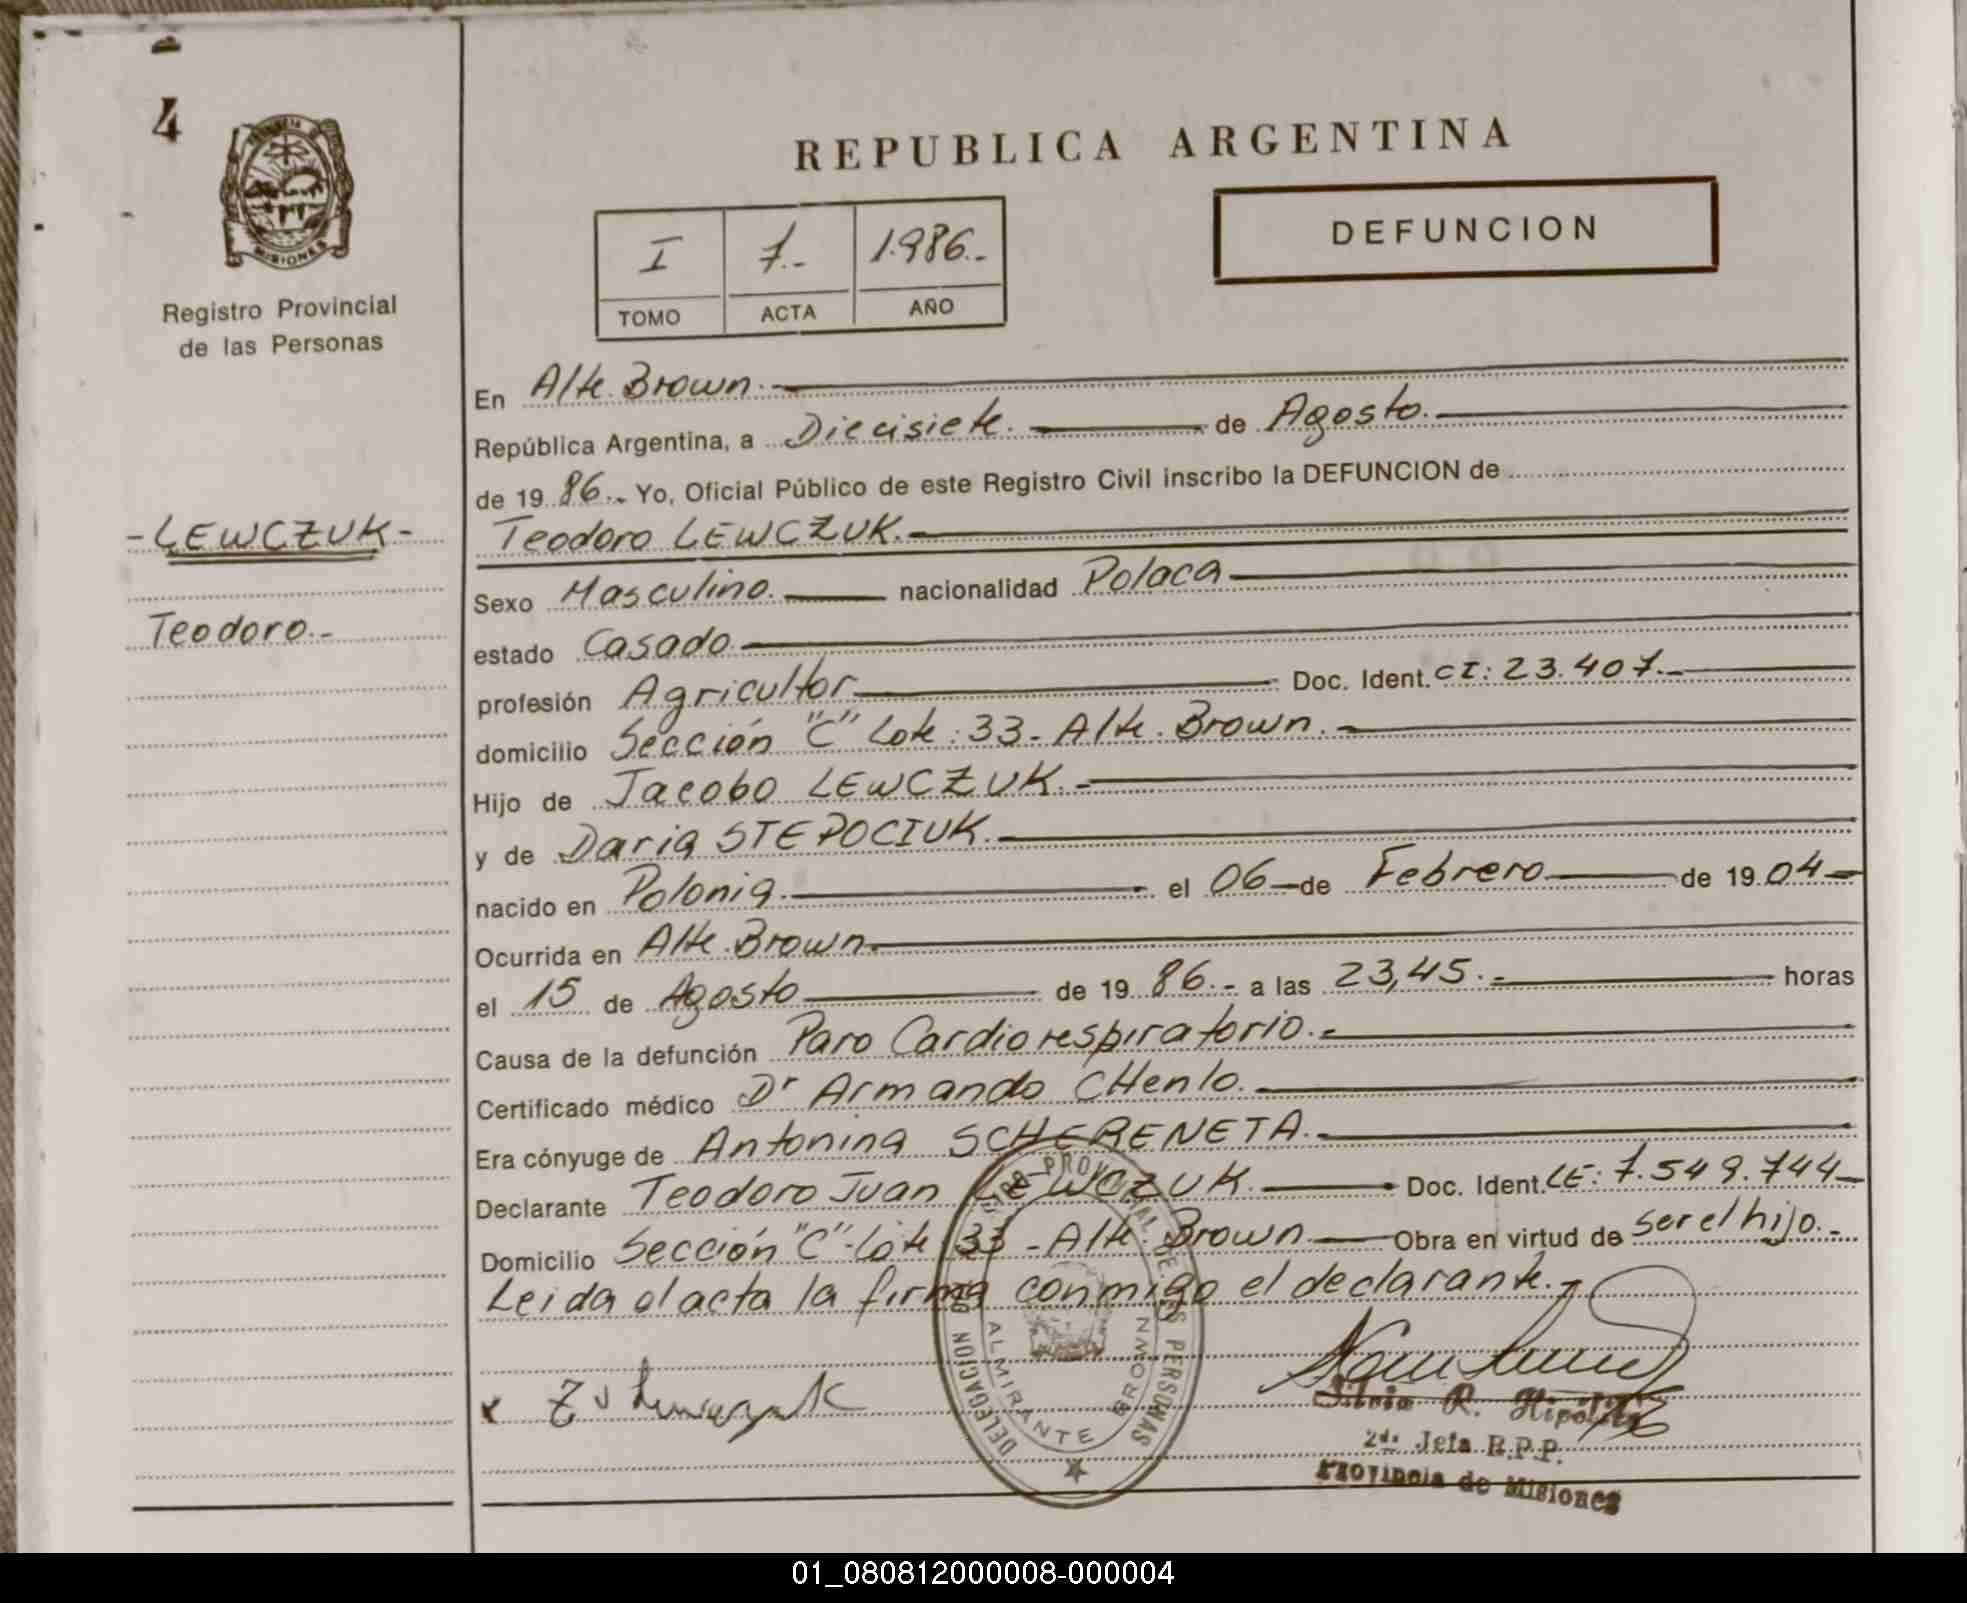 4
PROVINCIA
MISIONES
Registro Provincial
de las Personas
REPUBLICA ARGENTINA
DEFUNCION
I 7.- 1.986.-
TOMO ACTA AÑO
En Alte. Brown.
República Argentina, a Diecisiete. de Agosto.
de 19 86.- Yo, Oficial Público de este Registro Civil inscribo la DEFUNCION de
-LEWCZUK-
Teodoro LEWCZUK.
Teodoro.-
Sexo Masculino. nacionalidad Polaca
estado Casado
profesión Agricultor Doc. Ident. CI: 23.407.-
domicilio Sección "C" Lote: 33- Alte. Brown.-
Hijo de Jacobo LEWCZUK.-
y de Daria STEPOCIUK.
nacido en Polonia. el 06 de Febrero de 19 04
Ocurrida en Alte. Brown.
el 15 de Agosto de 19 86.- a las 23,45.- horas
Causa de la defunción Paro Cardiorespiratorio.-
Certificado médico Dr Armando CHenlo.
Era cónyuge de Antonina SCHERENETA.
Declarante Teodoro Juan LEWCZUK. Doc. Ident. LE: 7.549.744
Domicilio Sección "C"-Lote 33 - Alte. Brown. Obra en virtud de ser el hijo.-
Leida el acta la firma conmigo el declarante.-
PROVINCIAL DE LAS PERSONAS
DELEGACION
ALMIRANTE BROWN
x
Silvia R. Hipólito
2da Jefa R.P.P.
Provincia de Misiones
01_080812000008-000004